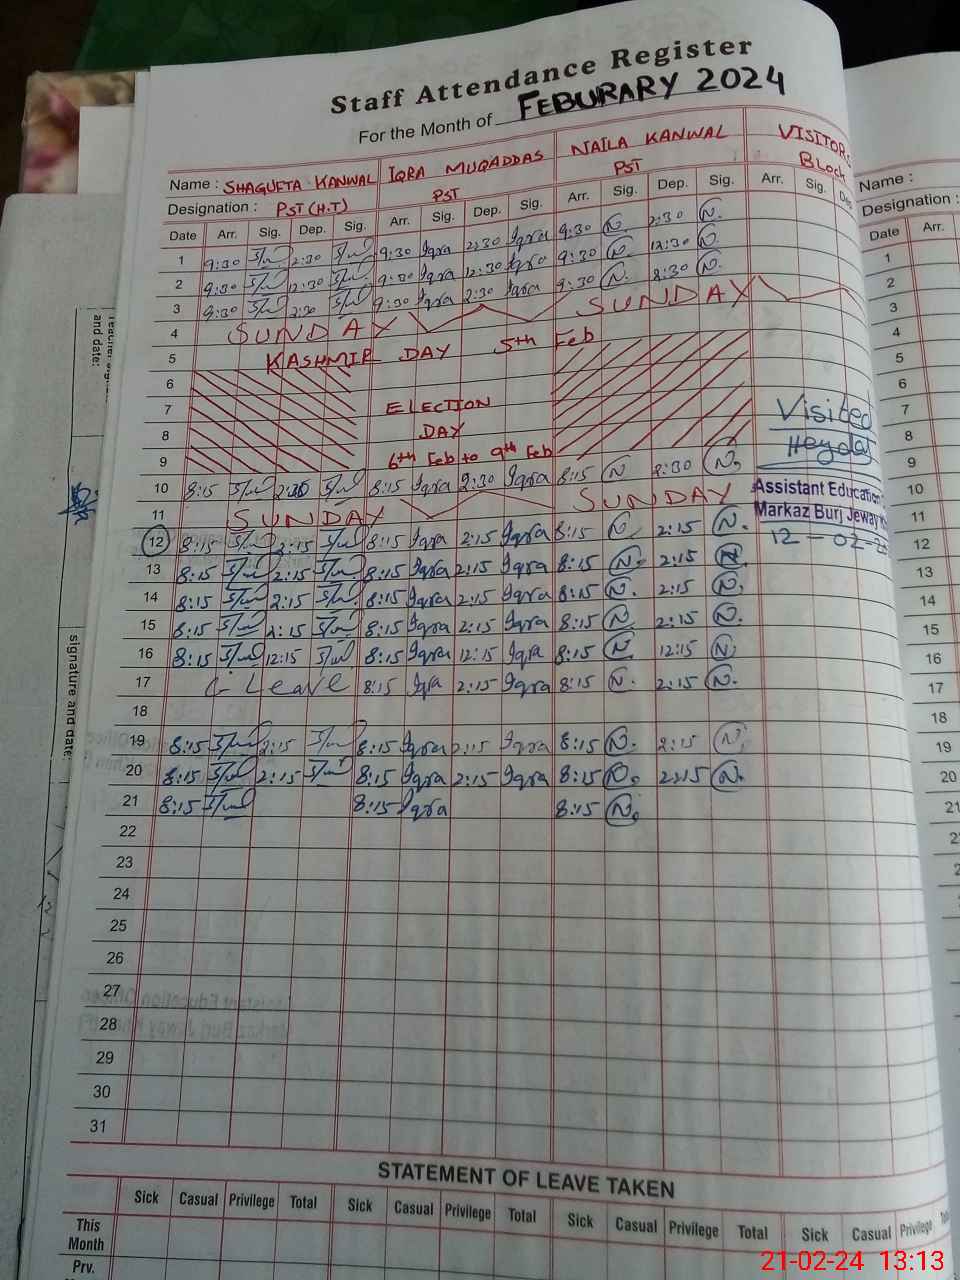 Staff Attendance Register
For the Month of FEBURARY 2024
Name : SHAGUFTA KANWAL IQRA MUQADDAS NAILA KANWAL VISITORS Block
Designation : PST (H.T) PST PST
Date Arr. Sig. Dep. Sig. Arr. Sig. Dep. Sig. Arr. Sig. Dep. Sig. Arr. Sig.
1 9:30 2:30 9:30 Iqra 2:30 Iqra 9:30 N. 2:30 N.
2 9:30 12:30 9:30 Iqra 12:30 Iqra 9:30 N. 12:30 N.
3 9:30 2:30 9:30 Iqra 2:30 Iqra 9:30 N. N.
4 SUNDAY SUNDAY
5 KASHMIR DAY 5th Feb
6
7 ELECTION
8 DAY
9 6th Feb to 9th Feb
10 8:15 2:30 8:15 Iqra 2:30 Iqra 8:15 N 2:30 N.
11 SUNDAY SUNDAY
12 8:15 2:15 8:15 Iqra 2:15 Iqra 8:15 N. 2:15 N.
13 8:15 2:15 8:15 Iqra 2:15 Iqra 8:15 N. 2:15 N.
14 8:15 2:15 8:15 Iqra 2:15 Iqra 8:15 N. 2:15 N.
15 8:15 2:15 8:15 Iqra 2:15 Iqra 8:15 N. 2:15 N.
16 8:15 12:15 8:15 Iqra 12:15 Iqra 8:15 N. 12:15 N.
17 C- Leave 8:15 Iqra 2:15 Iqra 8:15 N. 2:15 N.
18
19 8:15 2:15 8:15 Iqra 2:15 Iqra 8:15 N. 2:15 N.
20 8:15 2:15 8:15 Iqra 2:15 Iqra 8:15 N. 2:15 N.
21 8:15 8:15 Iqra 8:15 N.
22
23
24
25
26
27
28
29
30
31
Visited
Assistant Education
Markaz Burj Jeway
12-02-
STATEMENT OF LEAVE TAKEN
Sick Casual Privilege Total Sick Casual Privilege Total Sick Casual Privilege Total Sick Casual Privilege
This Month
Prv.
Name :
Designation :
Date Arr.
1
2
3
4
5
6
7
8
9
10
11
12
13
14
15
16
17
18
19
20
21
and date:
signature and date:
21-02-24 13:13